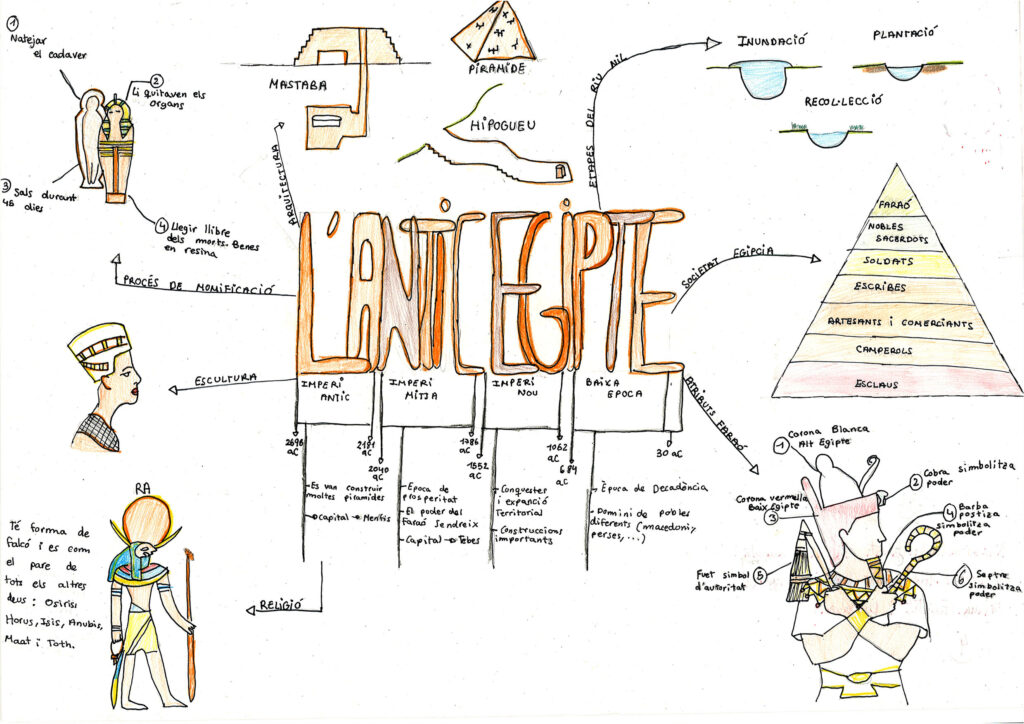 1
Natejar
el cadaver
2
Li quitaven els
organs
3
Sals durant
46 dies
4
Llegir llibre
dels morts. Benes
en resina
PROCÉS DE MOMIFICACIÓ
ARQUITECTURA
MASTABA
PIRAMIDE
HIPOGUEU
ETAPES DEL RIU NIL
INUNDACIÓ
PLANTACIÓ
RECOL·LECCIÓ
L'ANTIC EGIPTE
SOCIETAT EGIPCIA
FARAÓ
NOBLES
SACERDOTS
SOLDATS
ESCRIBES
ARTESANTS i COMERCIANTS
CAMPEROLS
ESCLAUS
ESCULTURA
IMPERI
ANTIC
IMPERI
MITJA
IMPERI
NOU
BAIXA
EPOCA
2696
aC
2181
aC
2040
aC
1786
aC
1552
aC
1062
aC
684
aC
30 aC
- Es van construir
moltes piramides
→ Capital → Menfis
- Epoca de
prosperitat
- El poder del
Faraó s'endreix
- Capital → Tebes
- Conquestes
i expanció
Territorial
- Construccions
importants
- Època de Decadència
- Domini de pobles
diferents (macedoni y
perses, ...)
RELIGIÓ
RA
Té forma de
falcó i es com
el pare de
tots els altres
deus: Osiris,
Horus, Isis, Anubis,
Maat i Toth.
ATRIBUTS FARAÓ
1
Corona Blanca
Alt Egipte
2
Cobra simbolitza
poder
Corona vermella
Baix Egipte
3
4
Barba
postiza
simbolitza
poder
Fuet simbol
d'autoritat
5
6
Septre
simbolitza
poder